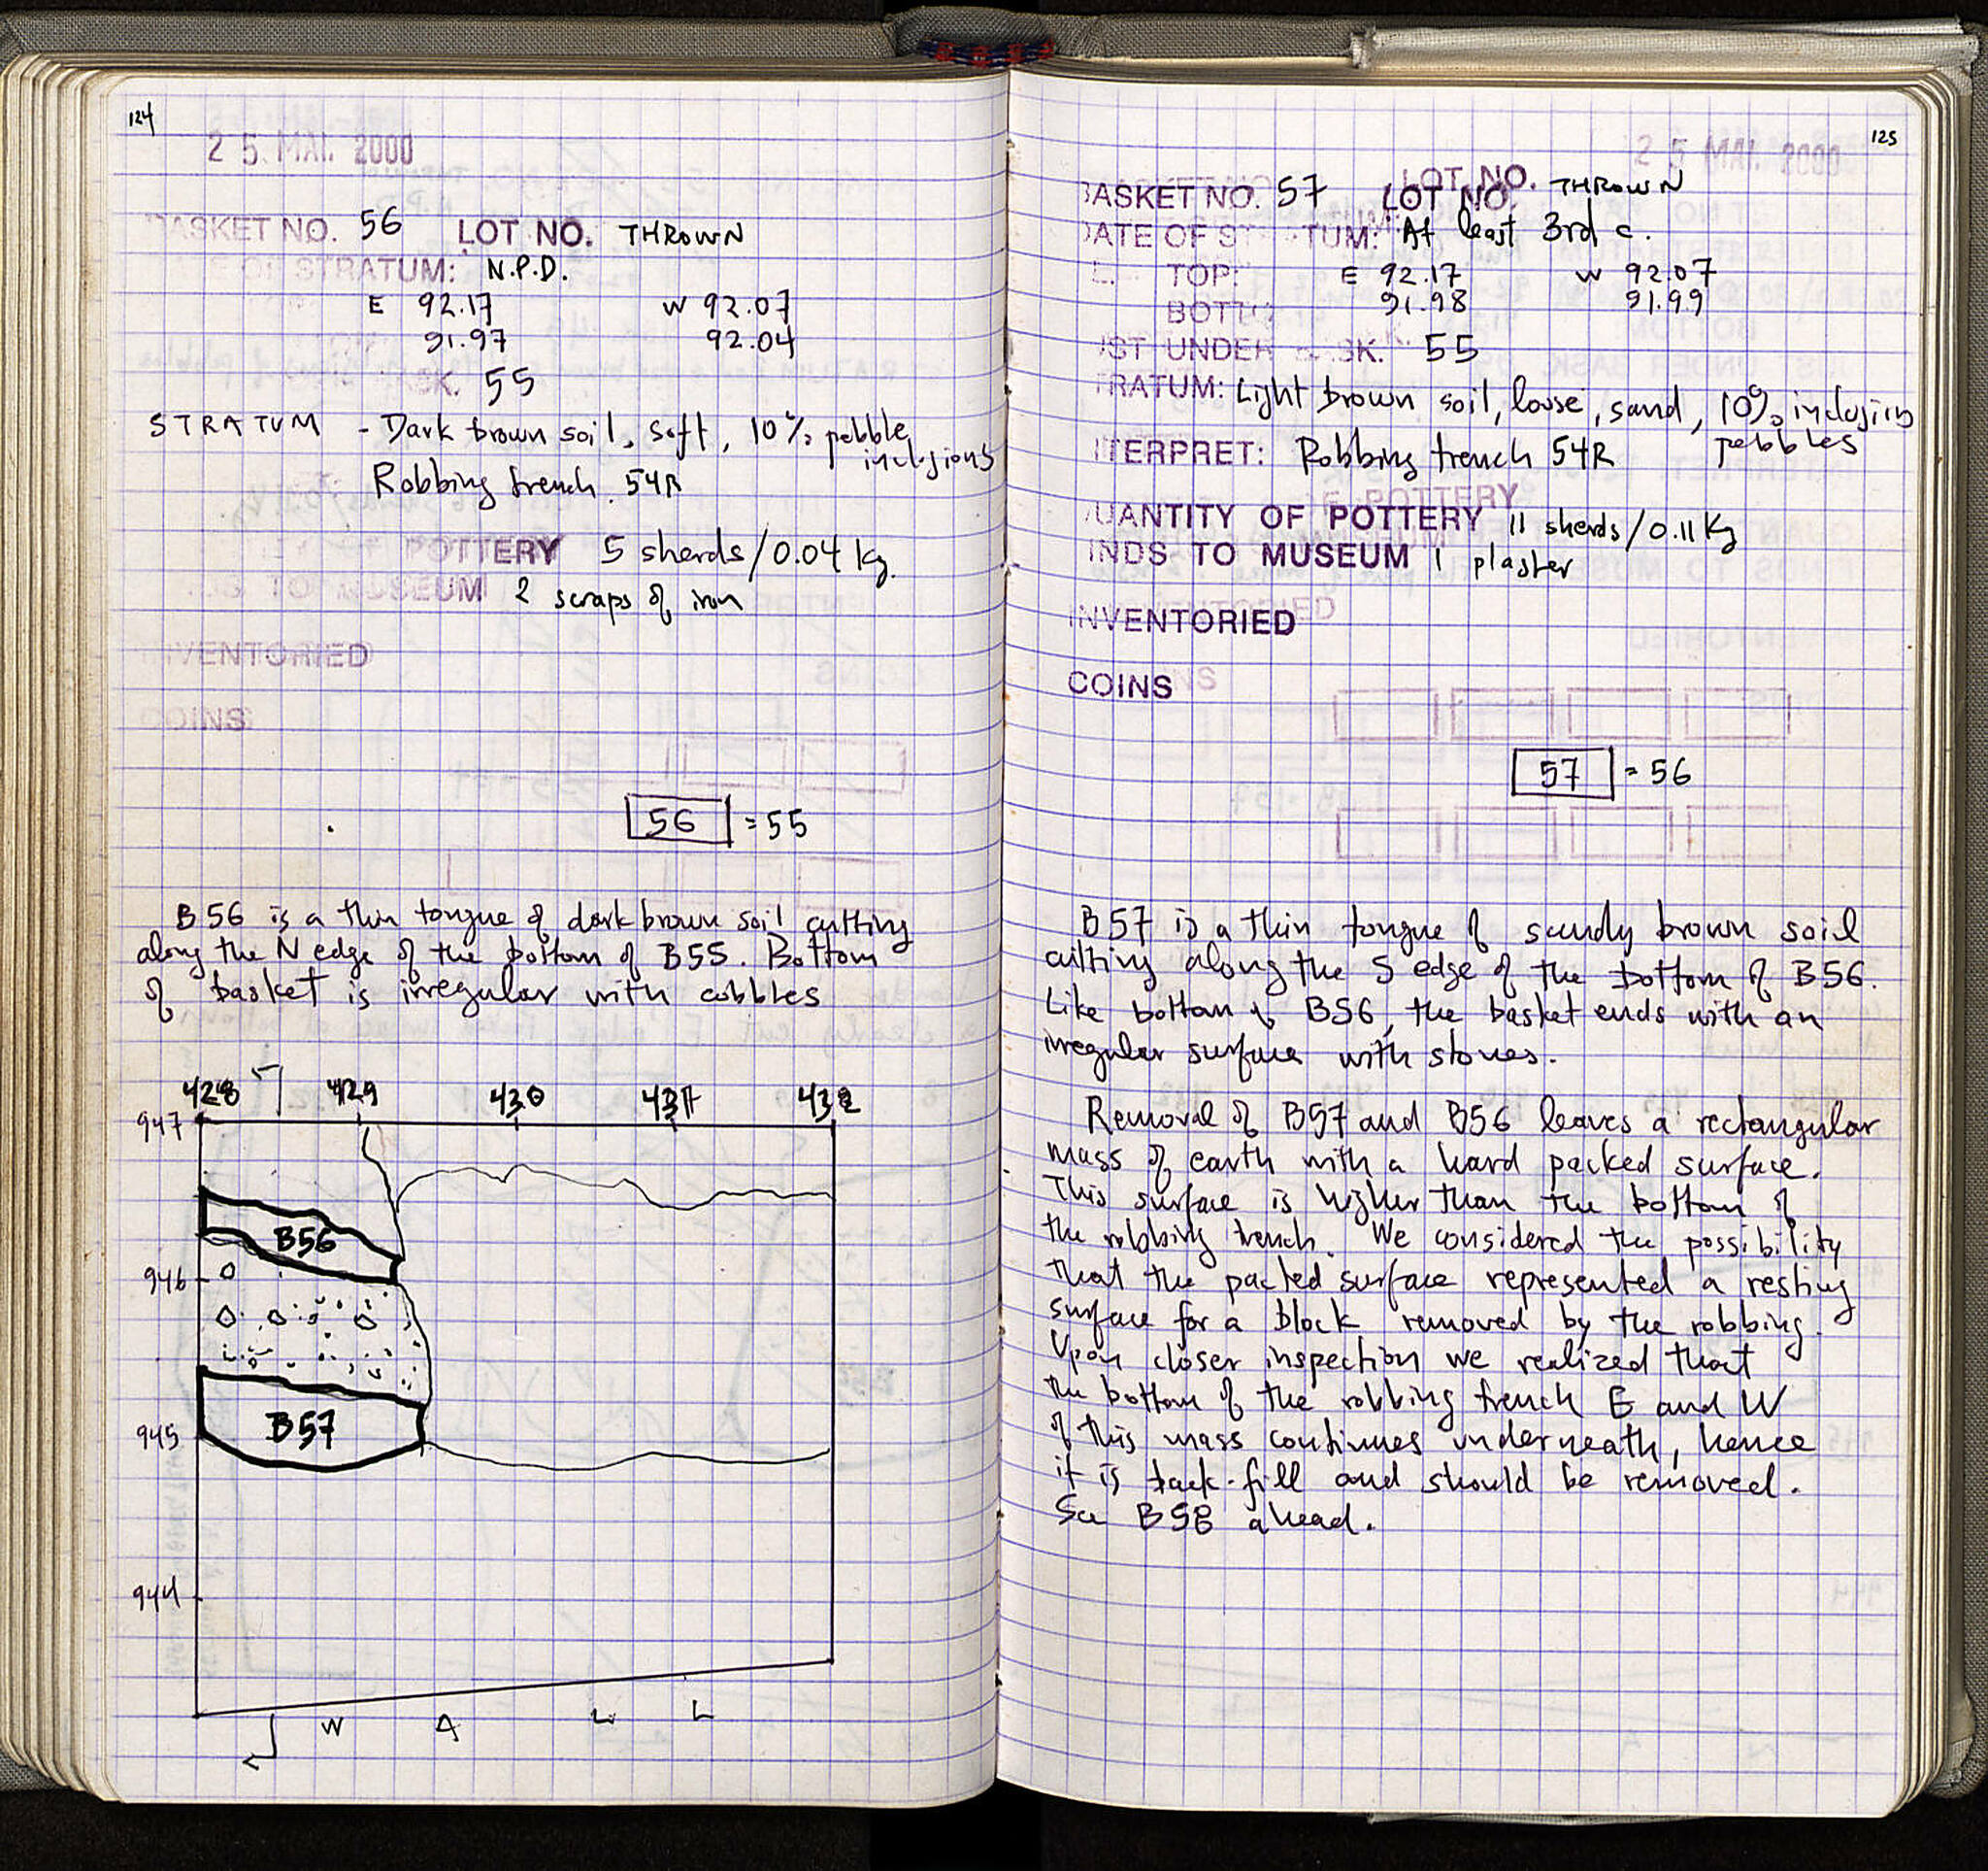 124
25 MAI 2000
BASKET NO. 56 LOT NO. THROWN
DATE OF STRATUM: N.P.D.
E 92.17 W 92.07
91.97 92.04
SK. 55
STRATUM - Dark brown soil, soft, 10% pebble
inclusions
Robbing trench. 54R
POTTERY 5 sherds/0.04 kg.
TO MUSEUM 2 scraps of iron
INVENTORIED
COINS
56 = 55
B56 is a thin tongue of dark brown soil cutting
along the N edge of the bottom of B55. Bottom
of basket is irregular with cobbles
428 429 430 431 432
947
B56
946
B57
945
944
W A L L
125
25 MAI 2000
BASKET NO. 57 LOT NO. THROWN
DATE OF STRATUM: At least 3rd c.
TOP: E 92.17 W 92.07
BOTT 91.98 91.99
JUST UNDER BASK. 55
STRATUM: Light brown soil, loose, sand, 10% inclusions
pebbles
INTERPRET: Robbing trench 54R
QUANTITY OF POTTERY 11 sherds/0.11 Kg
FINDS TO MUSEUM 1 plaster
INVENTORIED
COINS
57 = 56
B57 is a thin tongue of sandy brown soil
cutting along the S edge of the bottom of B56.
Like bottom of B56, the basket ends with an
irregular surface with stones.
Removal of B57 and B56 leaves a rectangular
mass of earth with a hard packed surface.
This surface is higher than the bottom of
the robbing trench. We considered the possibility
that the packed surface represented a resting
surface for a block removed by the robbing.
Upon closer inspection we realized that
the bottom of the robbing trench E and W
of this mass continues underneath, hence
it is back-fill and should be removed.
See B58 ahead.